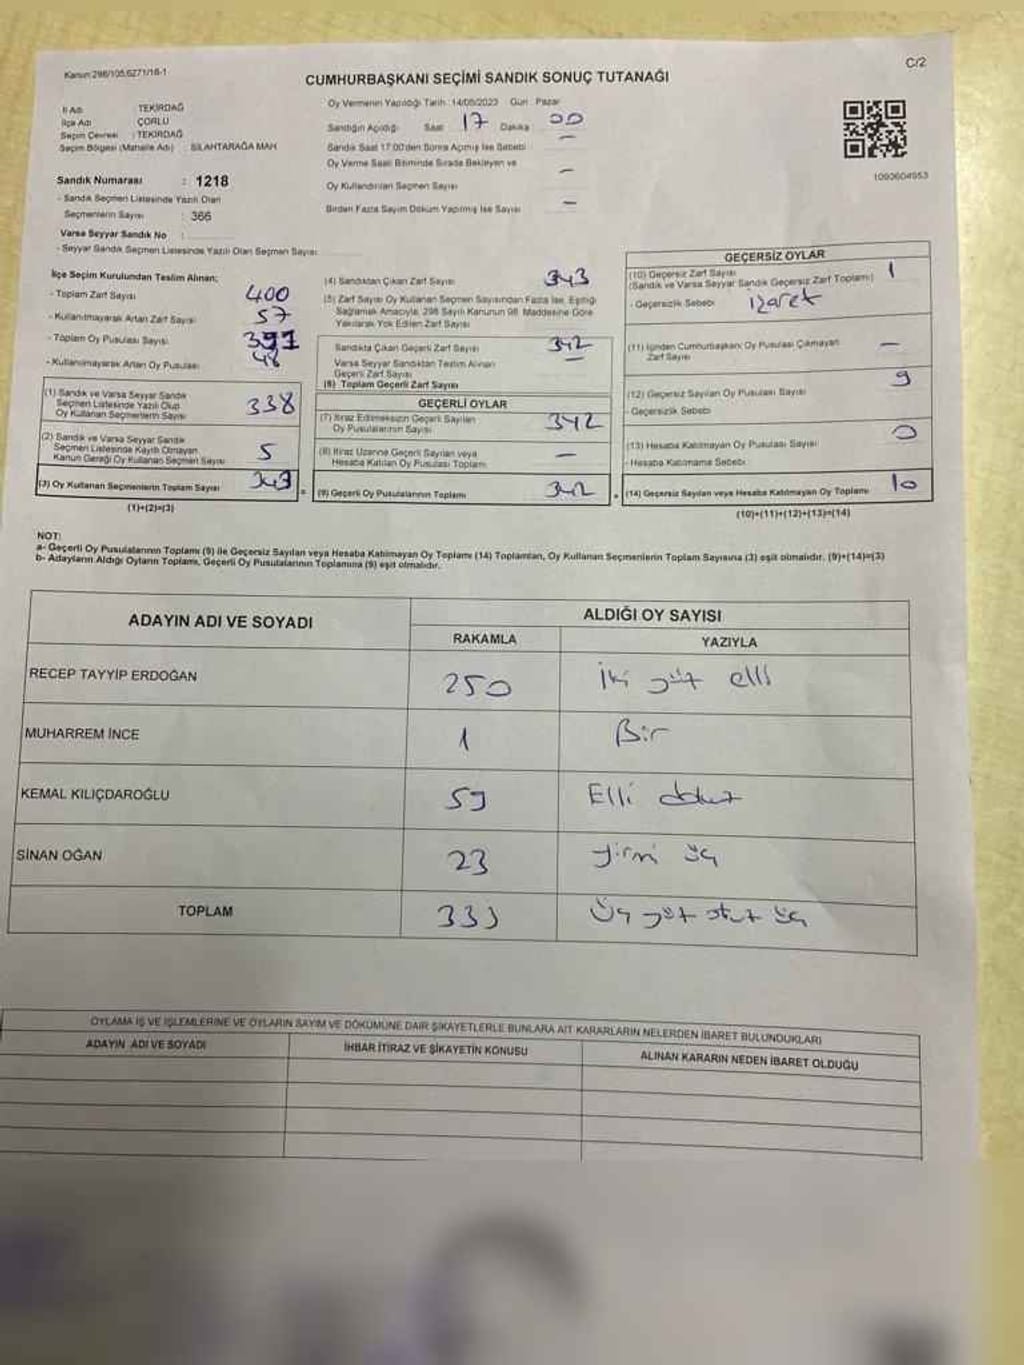 Kanun:298/105,6271/18-1
C/2
CUMHURBAŞKANI SEÇİMİ SANDIK SONUÇ TUTANAĞI
İl Adı : TEKİRDAĞ
İlçe Adı : ÇORLU
Seçim Çevresi : TEKİRDAĞ
Seçim Bölgesi (Mahalle Adı) : SİLAHTARAĞA MAH.
Sandık Numarası : 1218
- Sandık Seçmen Listesinde Yazılı Olan
Seçmenlerin Sayısı : 366
Varsa Seyyar Sandık No :
- Seyyar Sandık Seçmen Listesinde Yazılı Olan Seçmen Sayısı:
Oy Vermenin Yapıldığı Tarih : 14/05/2023 Gün : Pazar
Sandığın Açıldığı Saat 17 Dakika 00
Sandık Saat 17:00'den Sonra Açılmış İse Sebebi : —
Oy Verme Saati Bitiminde Sırada Bekleyen ve
Oy Kullandırılan Seçmen Sayısı —
Birden Fazla Sayım Döküm Yapılmış İse Sayısı —
1093604953
İlçe Seçim Kurulundan Teslim Alınan;
- Toplam Zarf Sayısı 400
- Kullanılmayarak Artan Zarf Sayısı 57
- Toplam Oy Pusulası Sayısı 391
- Kullanılmayarak Artan Oy Pusulası 48
(1) Sandık ve Varsa Seyyar Sandık
Seçmen Listesinde Yazılı Olup
Oy Kullanan Seçmenlerin Sayısı 338
(2) Sandık ve Varsa Seyyar Sandık
Seçmen Listesinde Kayıtlı Olmayan
Kanun Gereği Oy Kullanan Seçmen Sayısı 5
(3) Oy Kullanan Seçmenlerin Toplam Sayısı 343
(1)+(2)=(3)
(4) Sandıktan Çıkan Zarf Sayısı 343
(5) Zarf Sayısı Oy Kullanan Seçmen Sayısından Fazla İse, Eşitliği
Sağlamak Amacıyla, 298 Sayılı Kanunun 98. Maddesine Göre
Yakılarak Yok Edilen Zarf Sayısı
Sandıkta Çıkan Geçerli Zarf Sayısı 342
Varsa Seyyar Sandıktan Teslim Alınan
Geçerli Zarf Sayısı —
(6) Toplam Geçerli Zarf Sayısı
GEÇERLİ OYLAR
(7) İtiraz Edilmeksizin Geçerli Sayılan
Oy Pusulalarının Sayısı 342
(8) İtiraz Üzerine Geçerli Sayılan veya
Hesaba Katılan Oy Pusulası Toplamı —
(9) Geçerli Oy Pusulalarının Toplamı 342
GEÇERSİZ OYLAR
(10) Geçersiz Zarf Sayısı 1
(Sandık ve Varsa Seyyar Sandık Geçersiz Zarf Toplamı)
- Geçersizlik Sebebi : İşaret
(11) İçinden Cumhurbaşkanı Oy Pusulası Çıkmayan
Zarf Sayısı —
(12) Geçersiz Sayılan Oy Pusulası Sayısı 9
- Geçersizlik Sebebi:
(13) Hesaba Katılmayan Oy Pusulası Sayısı 0
- Hesaba Katılmama Sebebi
(14) Geçersiz Sayılan veya Hesaba Katılmayan Oy Toplamı 10
(10)+(11)+(12)+(13)=(14)
NOT:
a- Geçerli Oy Pusulalarının Toplamı (9) ile Geçersiz Sayılan veya Hesaba Katılmayan Oy Toplamı (14) Toplamları, Oy Kullanan Seçmenlerin Toplam Sayısına (3) eşit olmalıdır. (9)+(14)=(3)
b- Adayların Aldığı Oyların Toplamı, Geçerli Oy Pusulalarının Toplamına (9) eşit olmalıdır.
ADAYIN ADI VE SOYADI ALDIĞI OY SAYISI
RAKAMLA YAZIYLA
RECEP TAYYİP ERDOĞAN 250 İki yüz elli
MUHARREM İNCE 1 Bir
KEMAL KILIÇDAROĞLU 59 Elli dokuz
SİNAN OĞAN 23 yirmi üç
TOPLAM 333 Üç yüz otuz üç
OYLAMA İŞ VE İŞLEMLERİNE VE OYLARIN SAYIM VE DÖKÜMÜNE DAİR ŞİKAYETLERLE BUNLARA AİT KARARLARIN NELERDEN İBARET BULUNDUKLARI
ADAYIN ADI VE SOYADI İHBAR İTİRAZ VE ŞİKAYETİN KONUSU ALINAN KARARIN NEDEN İBARET OLDUĞU